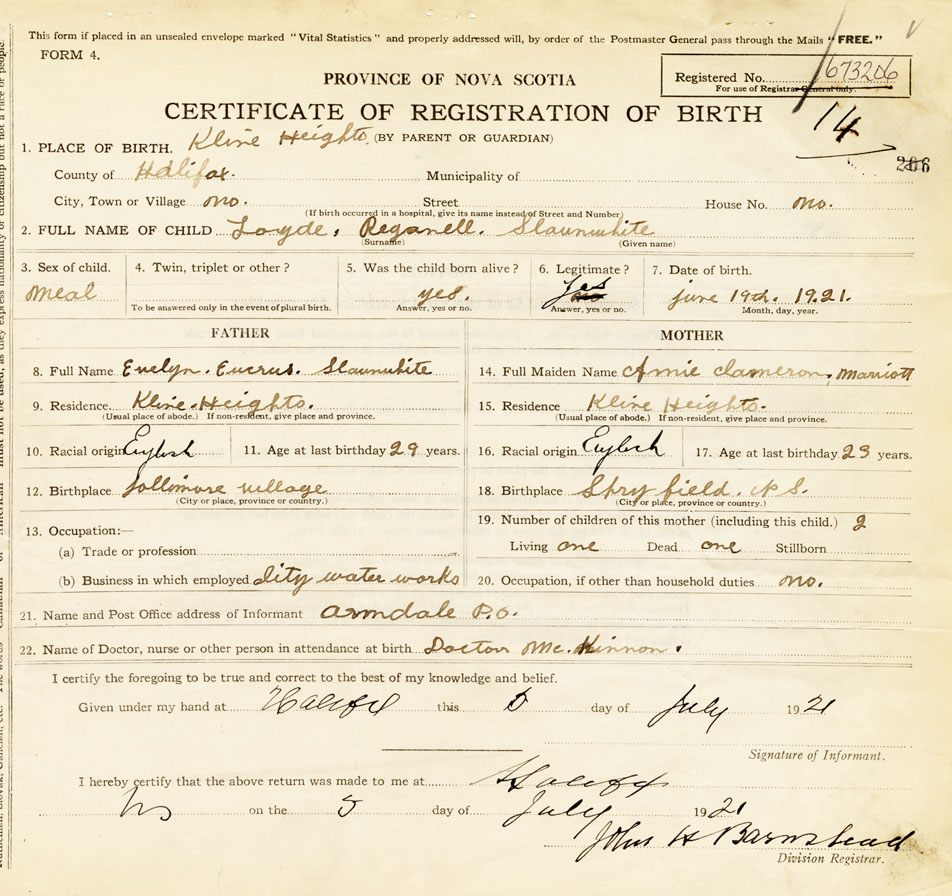 This form if placed in an unsealed envelope marked "Vital Statistics" and properly addressed will, by order of the Postmaster General pass through the Mails "FREE."
FORM 4.
PROVINCE OF NOVA SCOTIA
Registered No. 673206
For use of Registrar General only.
CERTIFICATE OF REGISTRATION OF BIRTH
14
(BY PARENT OR GUARDIAN)
206
1. PLACE OF BIRTH. Kline Heights
County of Halifax. Municipality of
City, Town or Village no. Street House No. no.
(If birth occurred in a hospital, give its name instead of Street and Number)
2. FULL NAME OF CHILD Loyde, Reganell. Slaunwhite
(Surname) (Given name)
3. Sex of child. 4. Twin, triplet or other? 5. Was the child born alive? 6. Legitimate? 7. Date of birth.
Meal yes. Yes june 19th. 1921.
To be answered only in the event of plural birth. Answer, yes or no. Answer, yes or no. Month, day, year.
FATHER MOTHER
8. Full Name Evelyn. Eucrus. Slaunwhite
14. Full Maiden Name Amie Cameron. Marriott
9. Residence. Kline Heights.
(Usual place of abode.) If non-resident, give place and province.
15. Residence Kline Heights.
(Usual place of abode.) If non-resident, give place and province.
10. Racial origin English 11. Age at last birthday 29 years.
16. Racial origin English 17. Age at last birthday 23 years.
12. Birthplace Jollimore village
(City or place, province or country.)
18. Birthplace Spryfield. N S.
(City or place, province or country.)
13. Occupation:—
(a) Trade or profession
(b) Business in which employed City water works
19. Number of children of this mother (including this child.) 2
Living one Dead one Stillborn
20. Occupation, if other than household duties no.
21. Name and Post Office address of Informant Armdale P.O.
22. Name of Doctor, nurse or other person in attendance at birth Doctor Mc. Kinnon.
I certify the foregoing to be true and correct to the best of my knowledge and belief.
Given under my hand at Halifax this 5 day of July 1921
Signature of Informant.
I hereby certify that the above return was made to me at Halifax
NS on the 5 day of July 1921
John H Barnstead
Division Registrar.